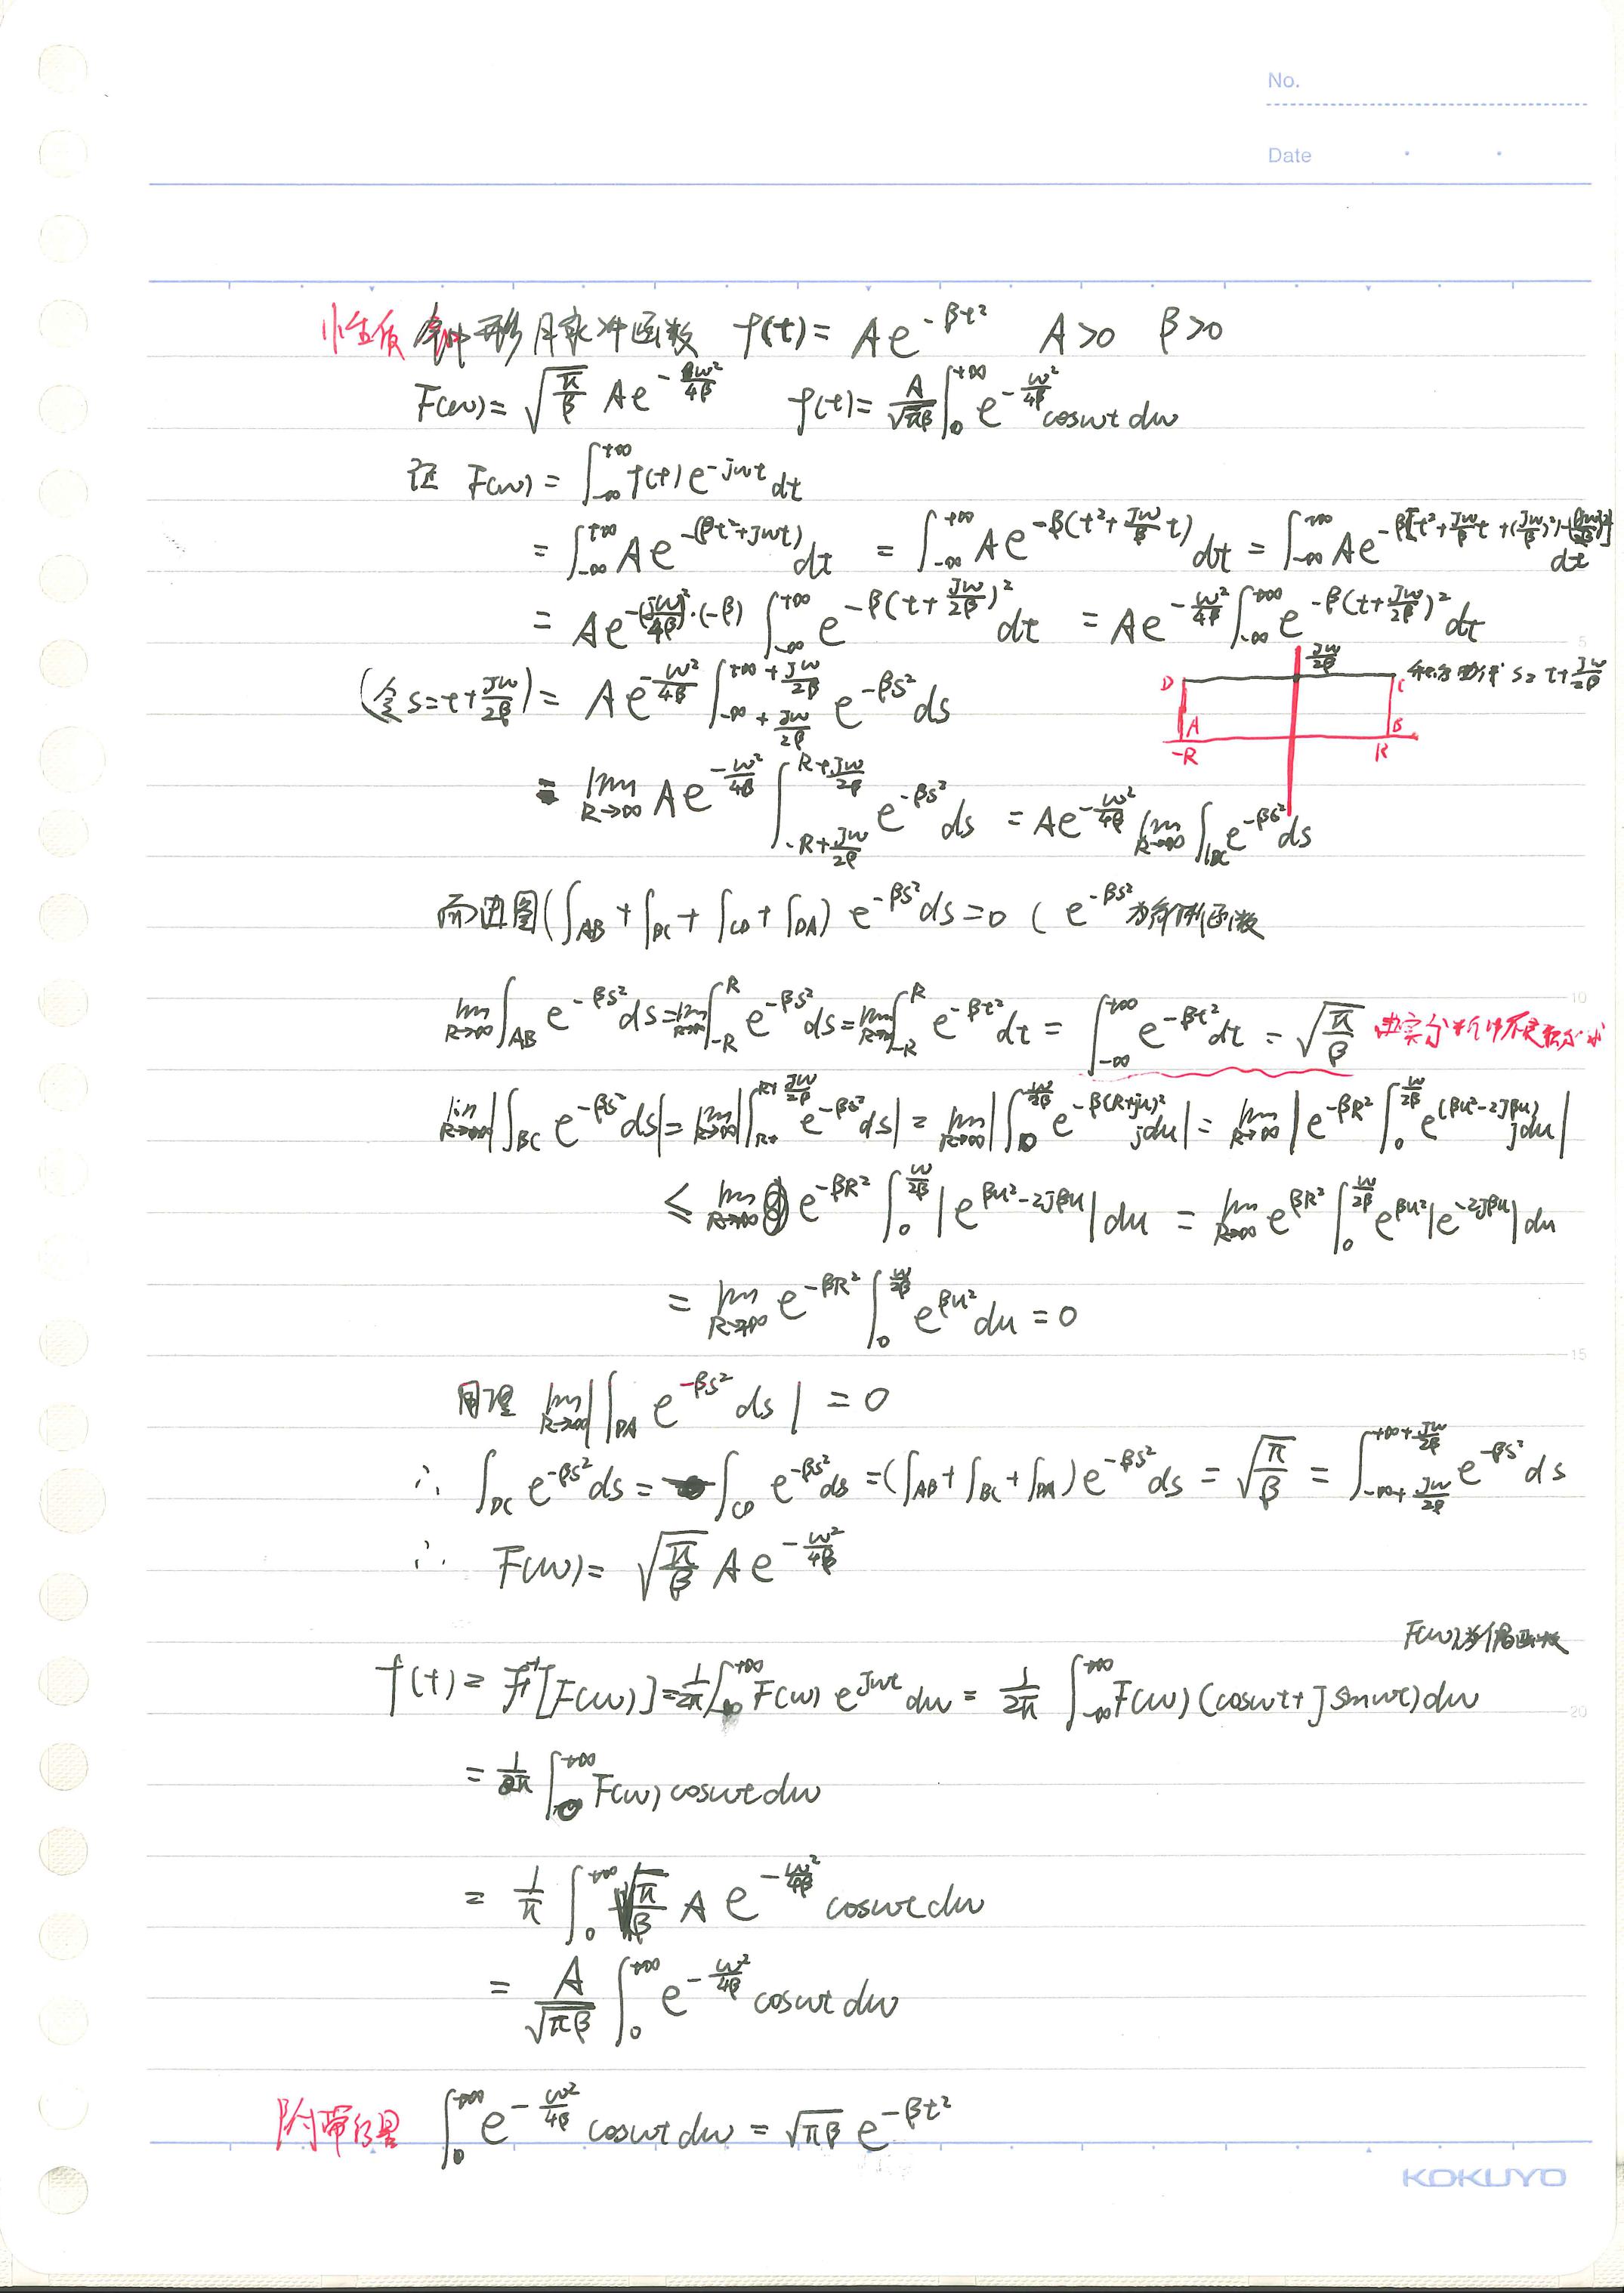 No.
Date
性质 钟形脉冲函数 f(t) = Ae^{-βt²} A>0 β>0
F(w) = √(π/β) Ae^{-w²/4β} f(t) = A/√(πβ) ∫_0^{+∞} e^{-w²/4β} coswt dw
证 F(w) = ∫_{-∞}^{+∞} f(t) e^{-jwt} dt
= ∫_{-∞}^{+∞} Ae^{-(βt²+jwt)} dt = ∫_{-∞}^{+∞} Ae^{-β(t²+\frac{jw}{β}t)} dt = ∫_{-∞}^{+∞} Ae^{-β[t²+\frac{jw}{β}t+(\frac{jw}{2β})²-(\frac{jw}{2β})²]} dt
= Ae^{-\frac{(jw)²}{4β}·(-β)} ∫_{-∞}^{+∞} e^{-β(t+\frac{jw}{2β})²} dt = Ae^{-w²/4β} ∫_{-∞}^{+∞} e^{-β(t+\frac{jw}{2β})²} dt
(令s=t+jw/2β) = Ae^{-w²/4β} ∫_{-∞+jw/2β}^{+∞+jw/2β} e^{-βs²} ds
jw/2β
D C s=t+jw/2β
A B
-R R
= lim_{R→∞} Ae^{-w²/4β} ∫_{-R+jw/2β}^{R+jw/2β} e^{-βs²} ds = Ae^{-w²/4β} lim_{R→∞} ∫_{DC} e^{-βs²} ds
而由图(∫_{AB} + ∫_{BC} + ∫_{CD} + ∫_{DA}) e^{-βs²} ds = 0 ( e^{-βs²} 为解析函数
lim_{R→∞} ∫_{AB} e^{-βs²} ds = lim_{R→∞} ∫_{-R}^{R} e^{-βs²} ds = lim_{R→∞} ∫_{-R}^{R} e^{-βt²} dt = ∫_{-∞}^{+∞} e^{-βt²} dt = √(π/β)
lim_{R→∞} |∫_{BC} e^{-βs²} ds| = lim_{R→∞} |∫_{R}^{R+jw/2β} e^{-βs²} ds| = lim_{R→∞} |∫_0^{w/2β} e^{-β(R+ju)²} jdu| = lim_{R→∞} |e^{-βR²} ∫_0^{w/2β} e^{(βu²-2jβu)} jdu|
≤ lim_{R→∞} e^{-βR²} ∫_0^{w/2β} |e^{βu²-2jβu}| du = lim_{R→∞} e^{βR²} ∫_0^{w/2β} e^{βu²} |e^{-2jβu}| du
= lim_{R→∞} e^{-βR²} ∫_0^{w/2β} e^{βu²} du = 0
同理 lim_{R→∞} |∫_{DA} e^{-βs²} ds| = 0
∴ ∫_{DC} e^{-βs²} ds = - ∫_{CD} e^{-βs²} ds = (∫_{AB} + ∫_{BC} + ∫_{DA}) e^{-βs²} ds = √(π/β) = ∫_{-∞+jw/2β}^{+∞+jw/2β} e^{-βs²} ds
∴ F(w) = √(π/β) Ae^{-w²/4β}
F(w)为偶函数
f(t) = F⁻¹[F(w)] = 1/2π ∫_{-∞}^{+∞} F(w) e^{jwt} dw = 1/2π ∫_{-∞}^{+∞} F(w) (coswt + j sinwt) dw
= 1/π ∫_0^{+∞} F(w) coswt dw
= 1/π ∫_0^{+∞} √(π/β) A e^{-w²/4β} coswt dw
= A/√(πβ) ∫_0^{+∞} e^{-w²/4β} coswt dw
附带结果 ∫_0^{+∞} e^{-w²/4β} coswt dw = √(πβ) e^{-βt²}
KOKUYO
5
10
15
20